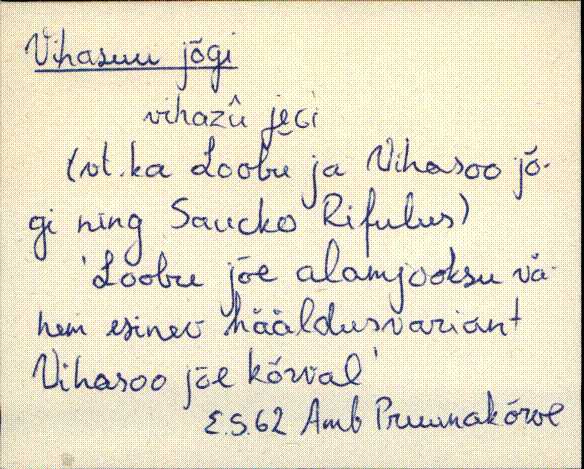 Vihasuu jõgi
vihazū jeGi
(vt. ka Loobu ja Vihasoo jõ-
gi ning Saucko Rifulus)
'Loobu jõe alamjooksu vä-
hem esinev hääldusvariant
Vihasoo jõe kõrval'
E.S.62 Amb Pruunakõrve